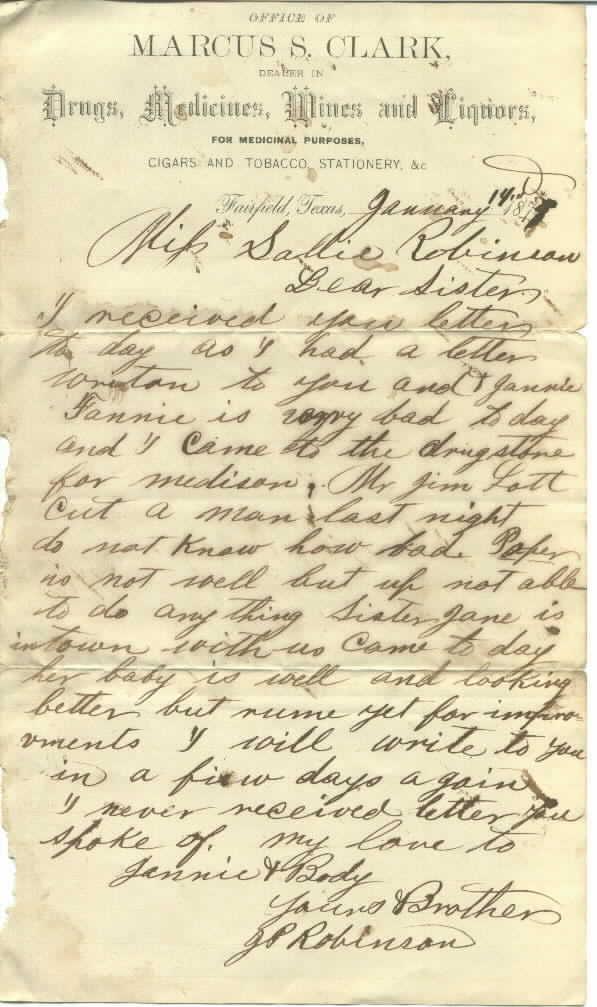 OFFICE OF
MARCUS S. CLARK,
DEALER IN
Drugs, Medicines, Wines and Liquors,
FOR MEDICINAL PURPOSES,
CIGARS AND TOBACCO, STATIONERY, &c
Fairfield, Texas, January 14 187
Miss Sallie Robinson
Dear Sister
I received you letter
to day as I had a letter
writon to you and Jannie
Fannie is very bad to day
and I came to the drugstore
for medison, Mr Jim Lott
cut a man last night
do not know how bad. Paper
is not well but up not able
to do any thing Sister Jane is
in town with us came to day
her baby is well and looking
better but rume yet for impro-
vments I will write to you
in a fiew days again
I never received letter you
spoke of. my love to
Jannie & Body
Yours & Brother
J P Robinson